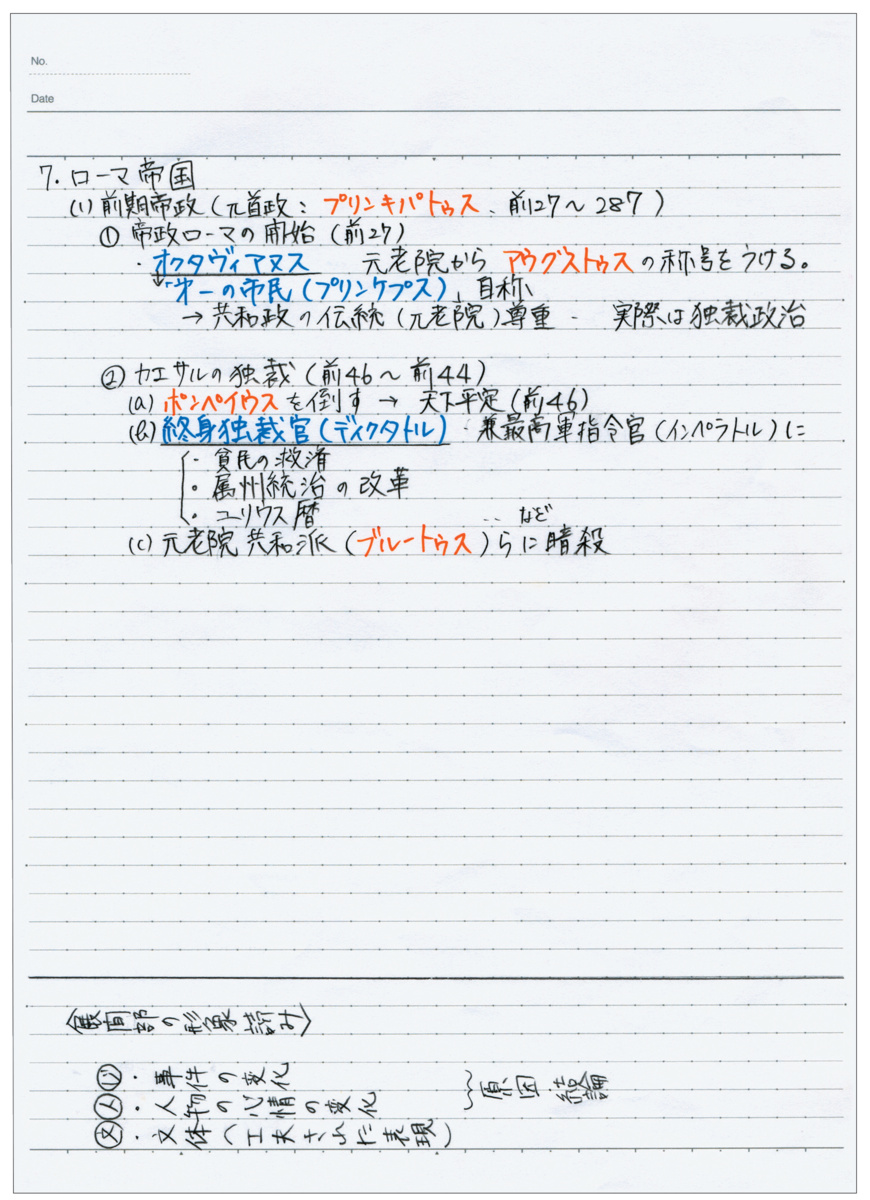 No.
Date
7. ローマ帝国
(1) 前期帝政 (元首政 : プリンキパトゥス、前27〜287)
① 帝政ローマの開始 (前27)
・オクタヴィアヌス 元老院から アウグストゥスの称号をうける。
↓「第一の市民 (プリンケプス)」自称、
→ 共和政の伝統 (元老院) 尊重・ 実際は独裁政治
② カエサルの独裁 (前46〜前44)
(a) ポンペイウスを倒す → 天下平定 (前46)
(b) 終身独裁官 (ディクタトル)・兼最高軍指令官 (インペラトル) に
・貧民の救済
・属州統治の改革
・ユリウス暦 ‥など
(c) 元老院共和派 (ブルートゥス) らに暗殺
〈展開部の形象読み〉
・事件の変化
人・人物の心情の変化
原因 結論
文・文体 (工夫された表現)